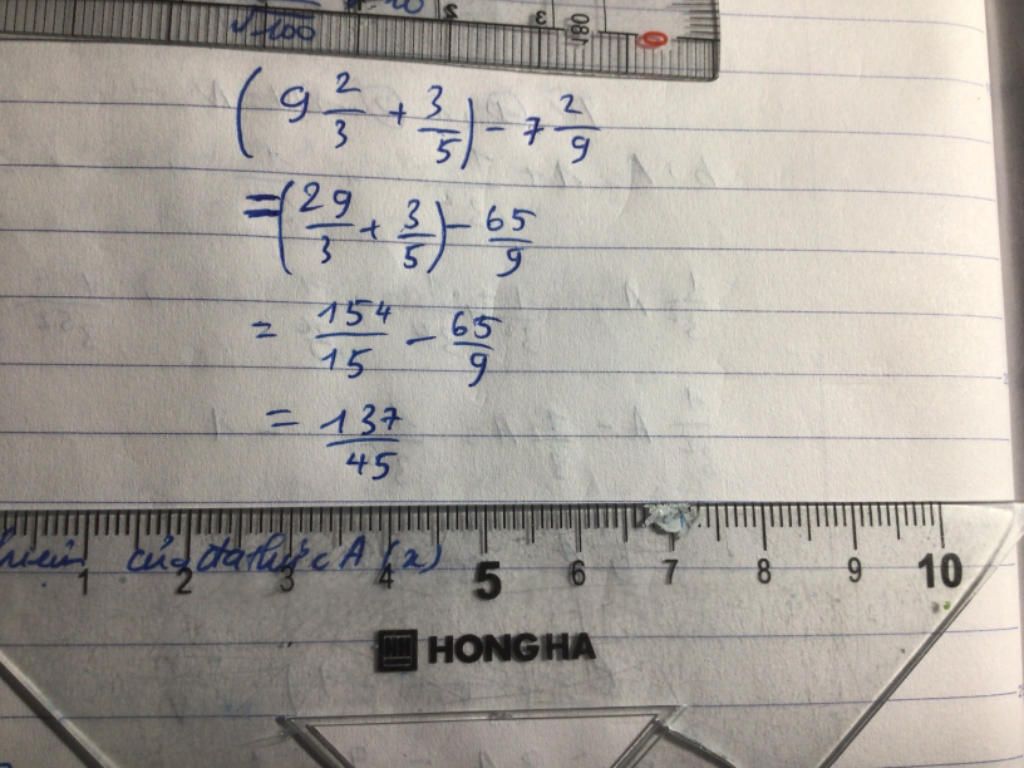 √100
180 0
( 9 2/3 + 3/5 ) - 7 2/9
= ( 29/3 + 3/5 ) - 65/9
= 154/15 - 65/9
= 137/45
của đa thức A (x)
1 2 3 4 5 6 7 8 9 10
HONG HA